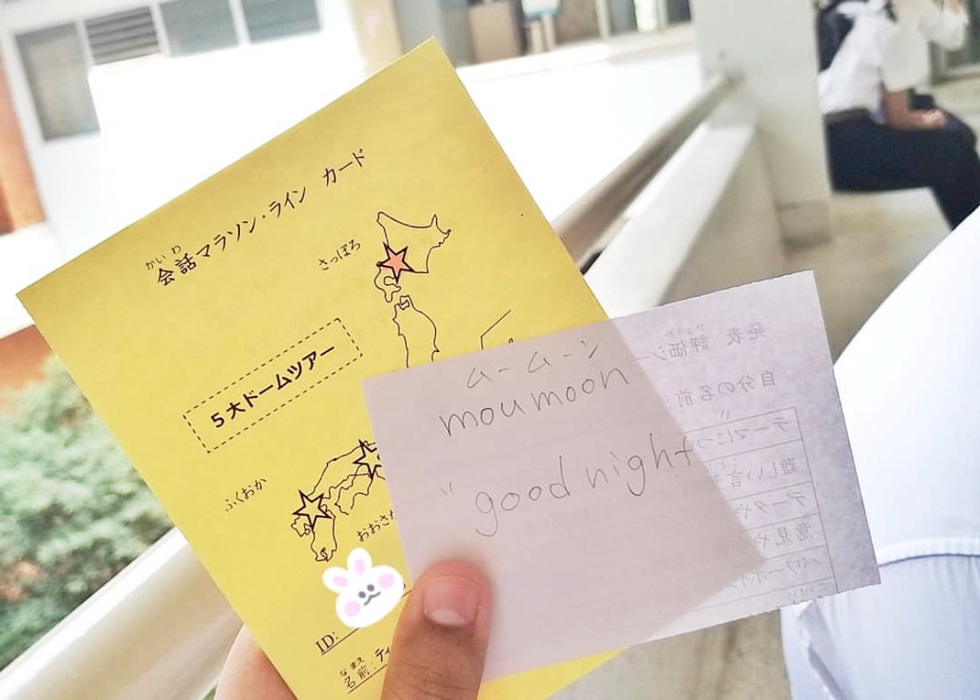 かいわ
会話マラソン・ライン カード
さっぽろ
5大ドームツアー
ふくおか
おおさか
ID:
なまえ
名前:ティ
ムームーン
moumoon
"good night"
発表 評価シー
自分の名前:
テーマにつ
難しい言
データや
意見や
パワーポイ